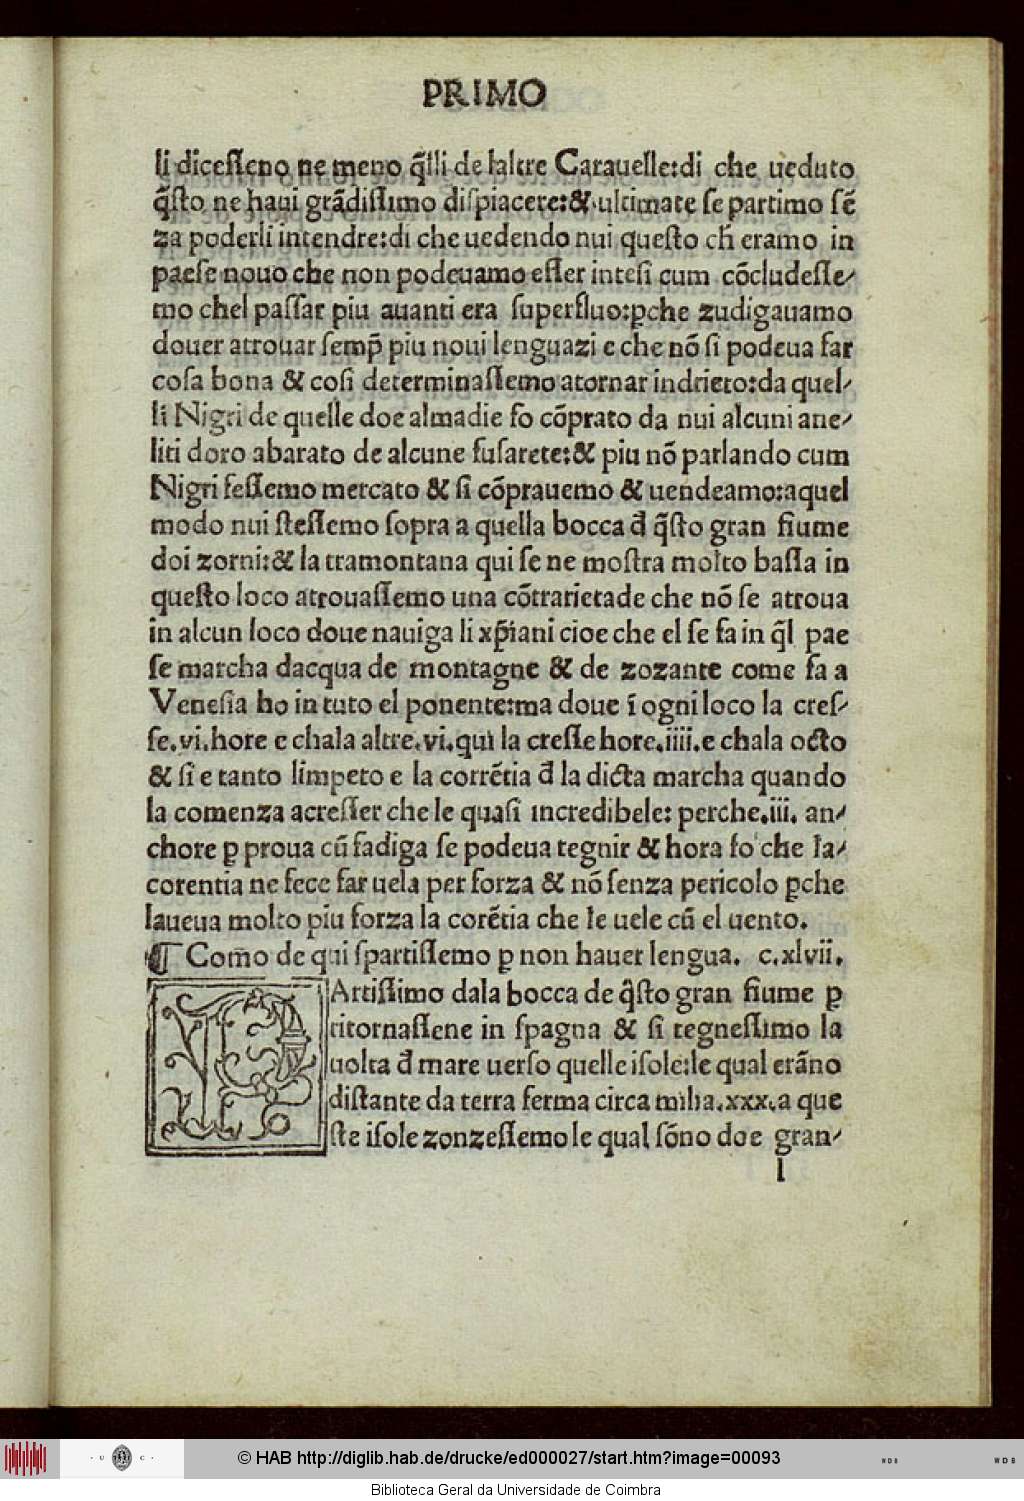 PRIMO
li dicesſeno ne meno q̃lli de laltre Carauelle:di che ueduto
q̃ſto ne haui grãdiſſimo diſpiacere:& ultimate ſe partimo ſẽ
za poderli intendre:di che uedendo nui queſto ch̃ eramo in
paeſe nouo che non podeuamo eſſer inteſi cum cõcludeſſe/
mo chel paſſar piu auanti era ſuperfluo:ꝑche zudigauamo
douer atrouar ſemp̃ piu noui lenguazi e che nõ ſi podeua far
coſa bona & coſi determinaſſemo atornar indrieto:da quel/
li Nigri de quelle doe almadie fo cõprato da nui alcuni ane/
liti doro abarato de alcune fuſarete:& piu nõ parlando cum
Nigri feſſemo mercato & ſi cõprauemo & uendeamo:aquel
modo nui ſteſſemo ſopra a quella bocca đ q̃ſto gran fiume
doi zorni:& la tramontana qui ſe ne moſtra molto baſſa in
queſto loco atrouaſſemo una cõtrarietade che nõ ſe atroua
in alcun loco doue nauiga li xp̃iani cioe che el ſe fa in q̃l pae
ſe marcha dacqua de montagne & de zozante come fa a
Veneſia ho in tuto el ponente:ma doue ĩ ogni loco la creſ/
ſe.vi.hore e chala altre.vi.qui la creſſe hore.iiii.e chala octo
& ſi e tanto limpeto e la corrẽtia đ la dicta marcha quando
la comenza acreſſer che le quaſi incredibele: perche.iii. an/
chore ꝑ proua cũ fadiga ſe podeua tegnir & hora fo che la/
corentia ne fece far uela per forza & nõ ſenza pericolo ꝑche
laueua molto piu forza la corẽtia che le uele cũ el uento.
¶ Com̃o de qui ſpartiſſemo ꝑ non hauer lengua. c.xlvii.
PArtiſſimo dala bocca de q̃ſto gran fiume ꝑ
ritornaſſene in ſpagna & ſi tegneſſimo la
uolta đ mare uerſo quelle iſole:le qual erãno
diſtante da terra ferma circa milia.xxx.a que
ſte iſole zonzeſſemo le qual ſõno doe gran/
l
© HAB http://diglib.hab.de/drucke/ed000027/start.htm?image=00093
· U C ·
WDB
WDB
Biblioteca Geral da Universidade de Coimbra